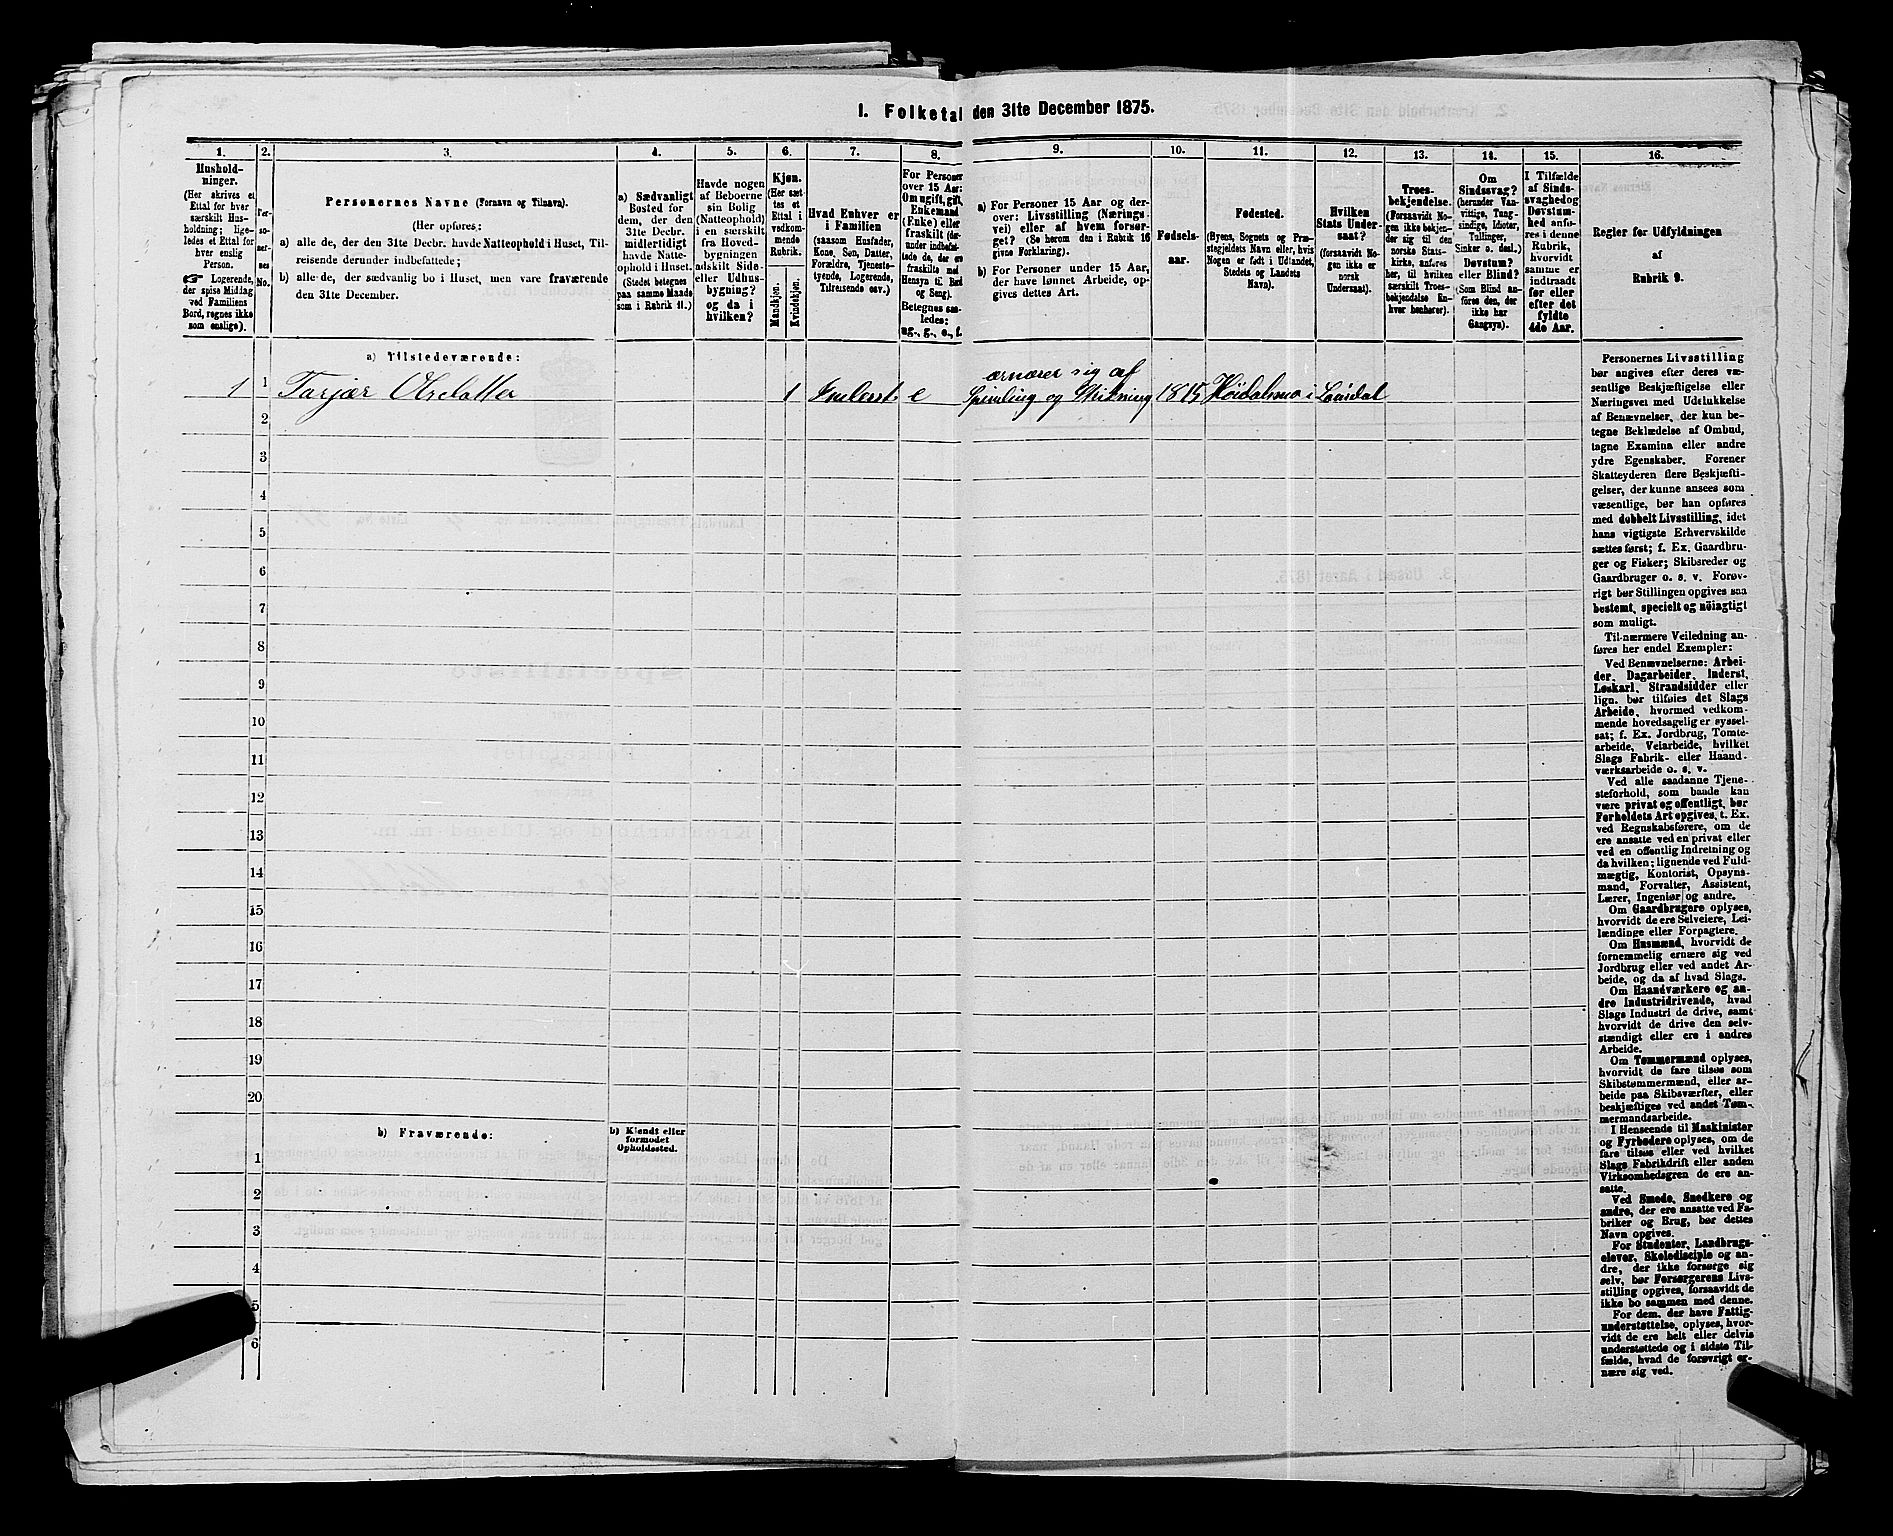 1. Folketal den 31te December 1875.
1.
Hushold-
ninger.
(Her skrives et
Ettal for hver
særskilt Hus-
holdning; lige-
ledes et Ettal for
hver enslig
Person.
☞ Logerende,
der spise Middag
ved Familiens
Bord, regnes ikke
som enslige).
2.
Per-
so-
ner-
nes
No.
3.
Personernes Navne (Fornavn og Tilnavn).
(Her opføres:
a) alle de, der den 31te Decbr. havde Natteophold i Huset, Til-
reisende derunder indbefattede;
b) alle de, der sædvanlig bo i Huset, men vare fraværende
den 31te December.
4.
a) Sædvanligt
Bosted for
dem, der den
31te Decbr.
midlertidigt
havde Natte-
ophold i Huset.
(Stedet betegnes
paa samme Maade
som i Rubrik 11.)
5.
Havde nogen
af Beboerne
sin Bolig
(Natteophold)
i en særskilt
fra Hoved-
bygningen
adskilt Side-
eller Udhus-
bygning?
og da i
hvilken?
6.
Kjøn.
(Her sæt-
tes et
Ettal i
vedkom-
mende
Rubrik.
Mandkjøn.
Kvindekjøn.
7.
Hvad Enhver er
i Familien
(saasom Husfader,
Kone, Søn, Datter,
Forældre, Tjeneste-
tyende, Logerende,
Tilreisende osv.)
8.
For Personer
over 15 Aar:
Om ugift, gift,
Enkemand
(Enke) eller
fraskilt (der-
under indbefat-
tede de, der ere
fraskilte med
Hensyn til Bord
og Seng).
Betegnes saa-
ledes:
ug., g., e., f.
9.
a) For Personer 15 Aar og der-
over: Livsstilling (Nærings-
vei) eller af hvem forsør-
get? (Se herom den i Rubrik 16
givne Forklaring).
b) For Personer under 15 Aar,
der have lønnet Arbeide, op-
gives dettes Art.
10.
Fødsels-
aar.
11.
Fødested.
(Byens, Sognets og Præ-
stegjeldets Navn eller, hvis
Nogen er født i Udlandet,
Stedets og Landets
Navn).
12.
Hvilken
Stats Under-
saat?
(forsaavidt No-
gen ikke er
norsk
Undersaat).
13.
Troes-
bekjendelse.
(Forsaavidt No-
gen ikke bekjen-
der sig til den
norske Stats-
kirke, anføres
her, til hvilken
særskilt Troes-
bekjendelse En-
hver henhører).
14.
Om
Sindssvag?
(herunder Van-
vittige, Tung-
sindige, Idioter,
Tullinger,
Sinker o. desl.)
Døvstum?
eller Blind?
(Som Blind an-
føres den, der
ikke har
Gangsyn).
15.
I Tilfælde
af Sinds-
svaghed og
Døvstum-
hed anfø-
res i denne
Rubrik,
hvorvidt
samme er
indtraadt
før eller
efter det
fyldte
4de Aar.
16.
Regler for Udfyldningen
af
Rubrik 9.
a) Tilstedeværende:
1 1 Tarjær Olsdatter 1 Inderst e ærnærer sig af
Spinding og Strikning 1815 Høidalsmo i Laurdal
2
3
4
5
6
7
8
9
10
11
12
13
14
15
16
17
18
19
20
b) Fraværende:
b) Kjendt eller
formodet
Opholdssted.
1
2
3
4
5
6
Personernes Livsstilling
bør angives efter deres væ-
sentlige Beskjæftigelse eller
Næringsvei med Udelukkelse
af Benævnelser, der kun be-
tegne Beklædelse af Ombud,
tagne Examina eller andre
ydre Egenskaber. Forener
Skatteyderen flere Beskjæfti-
gelser, der kunne ansees som
væsentlige, bør han opføres
med dobbelt Livsstilling, idet
hans vigtigste Erhvervskilde
sættes først; f. Ex. Gaardbru-
ger og Fisker; Skibsreder og
Gaardbruger o. s. v. Forøv-
rigt bør Stillingen opgives saa
bestemt, specielt og nöiagtigt
som muligt.
Til nærmere Veiledning an-
føres her endel Exempler:
Ved Benævnelserne: Arbei-
der, Dagarbeider, Inderst,
Løskarl, Strandsidder eller
lign. bør tilføies det Slags
Arbeide, hvormed vedkom-
mende hovedsagelig er syssel-
sat; f. Ex. Jordbrug, Tomte-
arbeide, Veiarbeide, hvilket
Slags Fabrik- eller Haand-
værksarbeide o. s. v.
Ved alle saadanne Tjene-
steforhold, som baade kan
være privat og offentligt, bør
Forholdets Art opgives, t. Ex.
ved Regnskabsførere, om de
ere ansatte ved en privat eller
ved en offentlig Indretning og
da hvilken; lignende ved Fuld-
mægtig, Kontorist, Opsyns-
mand, Forvalter, Assistent,
Lærer, Ingeniør og andre.
Om Gaardbrugere oplyses,
hvorvidt de ere Selveiere, Lei-
lændinge eller Forpagtere.
Om Husmænd, hvorvidt de
fornemmelig ernære sig ved
Jordbrug eller ved andet Ar-
beide, og da af hvad Slags.
Om Haandværkere og an-
dre Industridrivende, hvad
Slags Industri de drive, samt
hvorvidt de drive den selv-
stændigt eller ere i andres
Arbeide.
Om Tømmermænd oplyses,
hvorvidt de fare tilsøs som
Skibstømmermænd, eller ar-
beide paa Skibsværfter, eller
beskjæftiges ved andet Tøm-
mermandsarbeide.
I Henseende til Maskinister
og Fyrbødere oplyses, om de
fare tilsøs eller ved hvilket
Slags Fabrikdrift eller anden
Virksomhedsgren de ere an-
satte.
Ved Smede, Snedkere og
andre, der ere ansatte ved Fa-
briker og Brug, bør dettes
Navn opgives.
For Studenter, Landbrugs-
elever, Skoledisciple og an-
dre, der ikke forsørge sig
selv, bør Forsørgerens Livs-
stilling opgives, forsaavidt de
ikke bo sammen med denne.
For dem, der have Fattig-
understøttelse, oplyses, hvor-
vidt de ere helt eller delvis
understøttede og i sidste Til-
fælde, hvad de forøvrigt er-
nære sig ved.